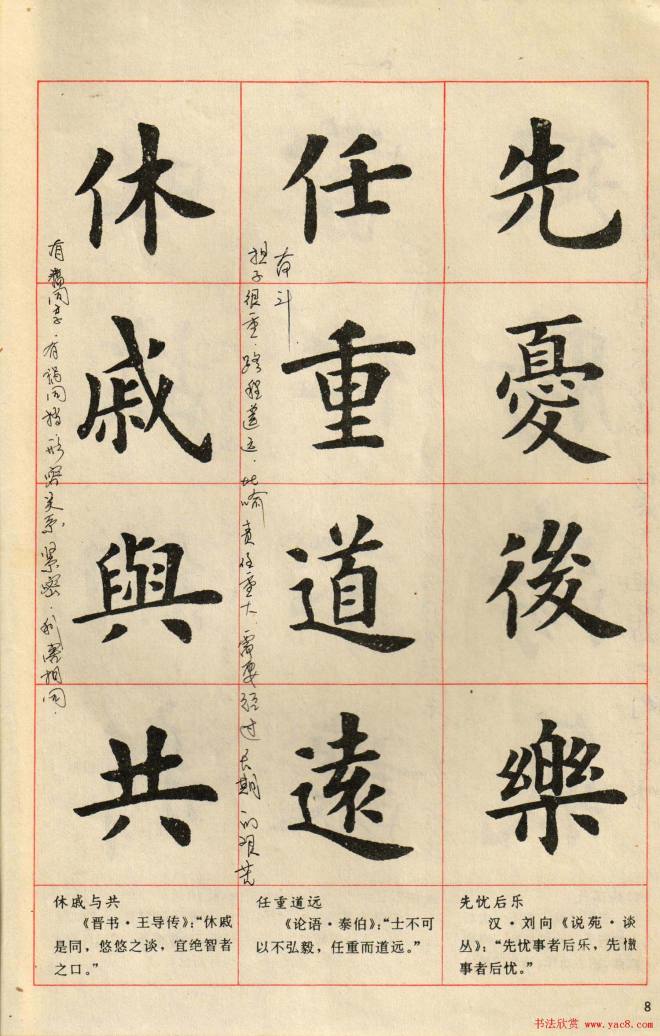 先憂後樂
任重道遠
休戚與共
担子很重.路程遥远.比喻责任重大.需要经过长期的艰苦
奋斗
有福同享.有祸同挡.形容关系紧密.利害相同.
先忧后乐
汉·刘向《说苑·谈
丛》：“先忧事者后乐，先傲
事者后忧。”
任重道远
《论语·泰伯》：“士不可
以不弘毅，任重而道远。”
休戚与共
《晋书·王导传》：“休戚
是同，悠悠之谈，宜绝智者
之口。”
8
书法欣赏 www.yac8.com